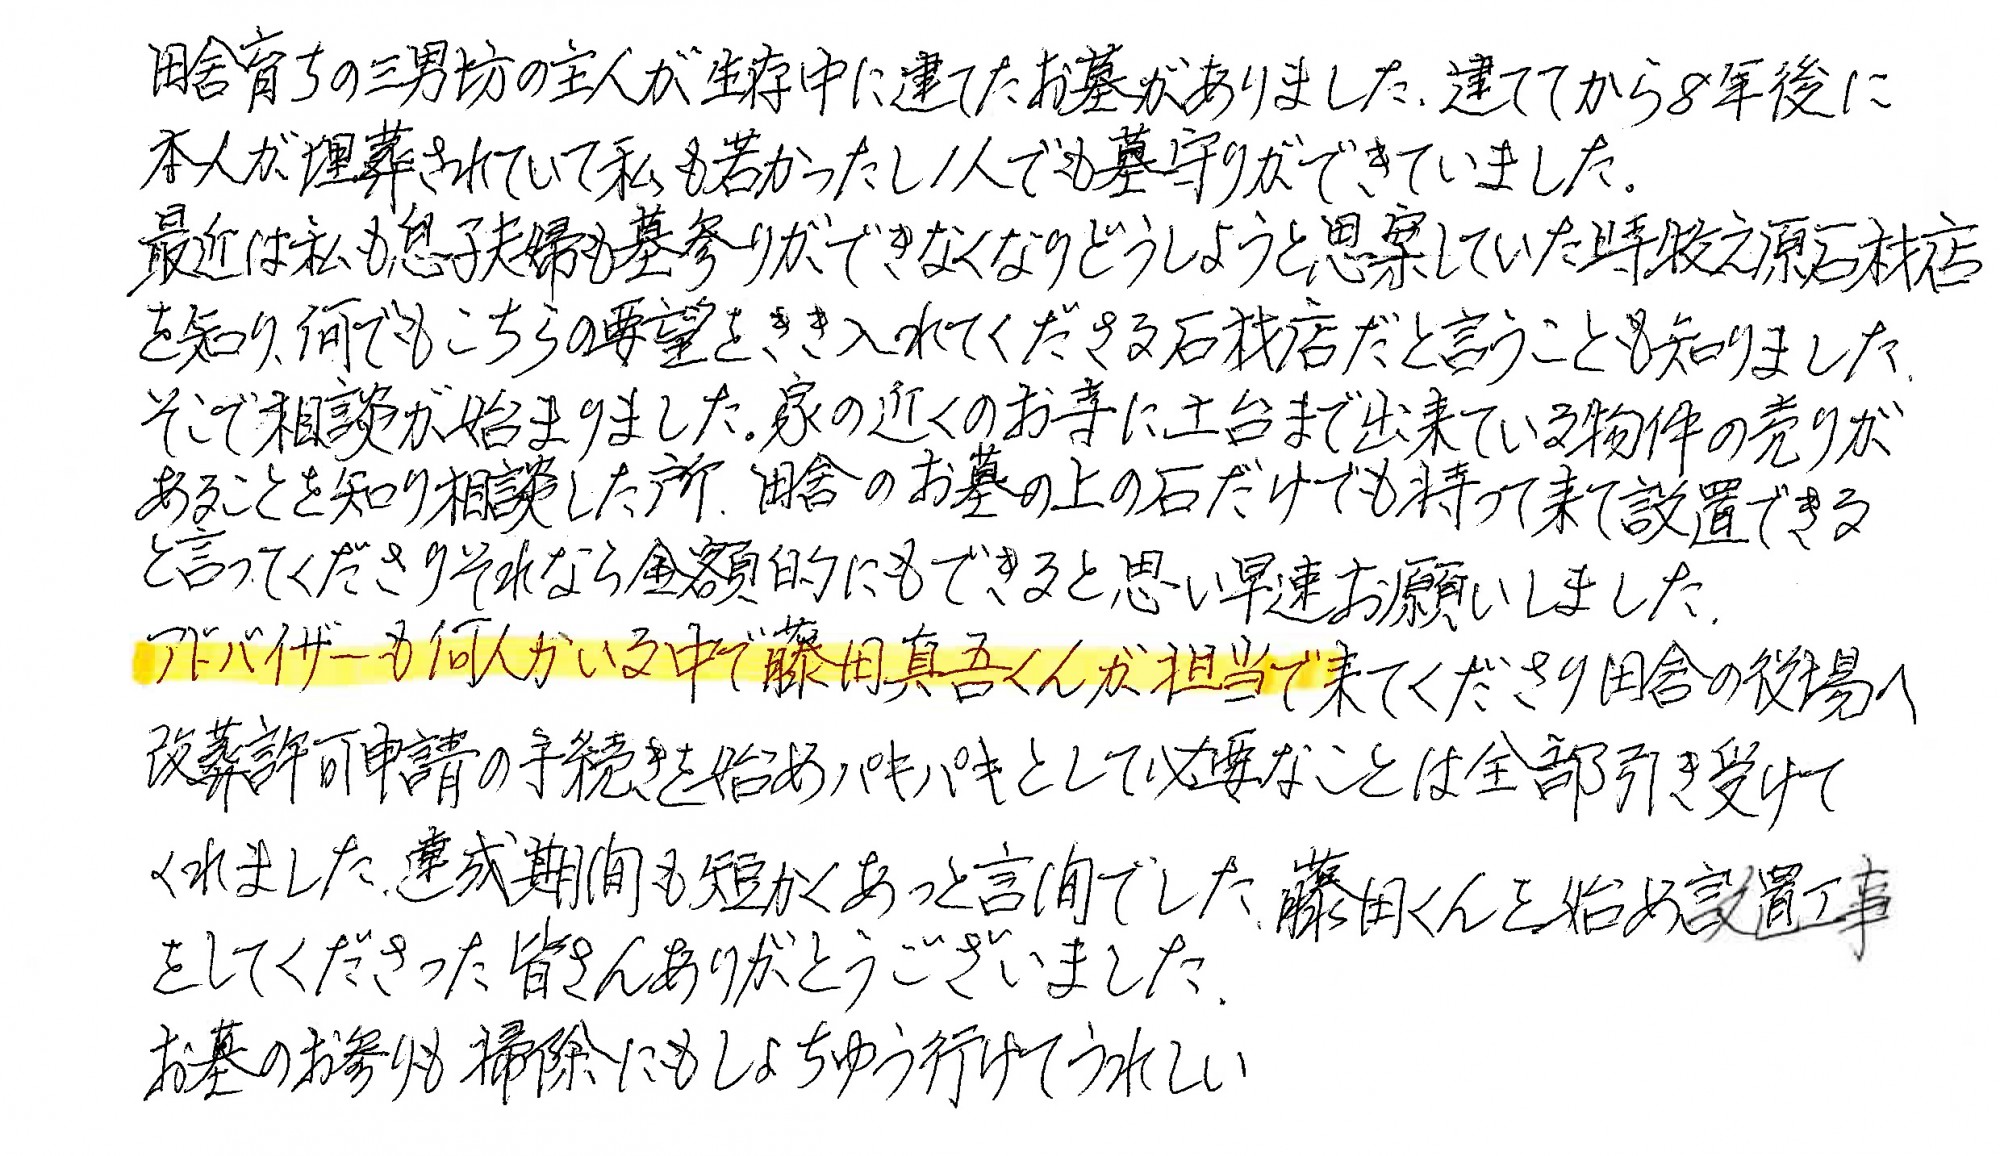 田舎育ちの三男坊の主人が生存中に建てたお墓がありました、建ててから8年後に
本人が埋葬されていて私も若かったし1人でも墓守りができていました。
最近は私も息子夫婦も墓参りができなくなりどうしようと思案していた時牧之原石材店
を知り、何でもこちらの要望をきき入れてくださる石材店だと言うことも知りました、
そこで相談が始まりました。家の近くのお寺に土台まで出来ている物件の売りが
あることを知り相談した所、田舎のお墓の上の石だけでも持って来て設置できる
と言ってくださりそれなら金額的にもできると思い早速お願いしました、
アドバイザーも何人かいる中で藤田真吾くんが担当で来てくださり田舎の役場へ
改葬許可申請の手続きを始めパキパキとして必要なことは全部引き受けて
くれました、達成期間も短かくあっと言間でした、藤田くんを始め設置工事
をしてくださった皆さんありがとうございました、
お墓のお参りも掃除にもしょちゆう行けてうれしい